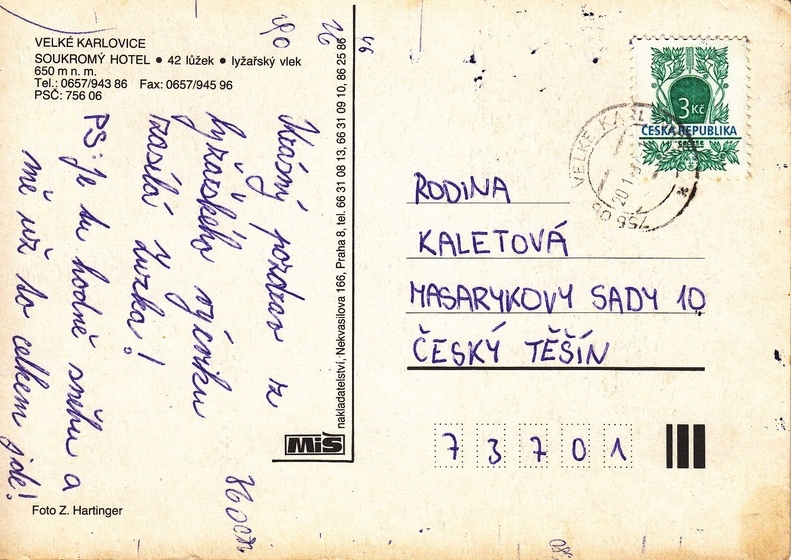 VELKÉ KARLOVICE
SOUKROMÝ HOTEL • 42 lůžek • lyžařský vlek
650 m n. m.
Tel.: 0657/943 86 Fax: 0657/945 96
PSČ: 756 06
Krásný pozdrav z
lyžařského výcviku
zasílá Zuzka!
PS: Je tu hodně sněhu a
mě už to celkem jde!
Foto Z. Hartinger
MiŠ
nakladatelství, Nekvasilova 166, Praha 8, tel. 66 31 08 13, 66 31 09 10, 86 25 86
3 Kč
ČESKÁ REPUBLIKA
VELKÉ KARL
756 06
RODINA
KALETOVÁ
MASARYKOVY SADY 10
ČESKÝ TĚŠÍN
73701